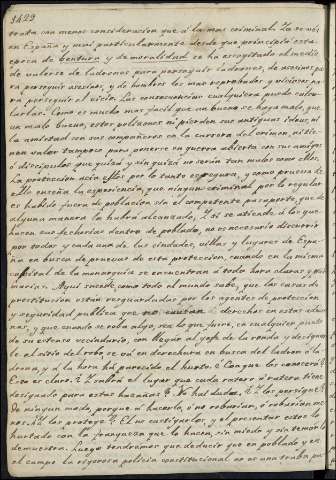 3422
trata con menos consideracion que á la mas criminal. Ya se vé
en España y mui particularmente desde que principió esta
epoca de bentura y de moralidad se ha escogitado el medio
de valerse de ladrones para perseguir ladrones, de asesinos pa-
ra perseguir asesinos, y de hombres los mas reprobados y viciosos pa-
ra perseguir el vicio. Las consecuencias cualquiera puede calcu-
larlas. Como es mucho mas facil que un bueno se haga malo, que
un malo bueno, estos polizontes ni pierden sus antiguas ideas, ni
la amistad con sus compañeros en la carrera del crimen, ni tie-
nen valor tampoco para ponerse en guerra abierta con sus amigos
ó discipulos que quizá y sin quizá no serán tan malos como ellos.
La proteccion así ellos por lo tanto es segura, y como prueba de
ello enseña la esperiencia, que ningun criminal por lo regular
es habido fuera de poblacion sin el competente pasaporte, que de
alguna manera lo habrá alcanzado, y si se atiende á los que
hacen sus fechorias dentro de poblado, no es necesario discurrir
por todas y cada una de las ciudades, villas y lugares de Espa-
ña en busca de pruebas de esta proteccion, cuando en la misma
capital de la monarquia se encuentran á toda hora claras y pal-
marias. Aqui sucede, como todo el mundo sabe, que las casas de
prostitucion estan resguardadas por los agentes de proteccion
y seguridad publica que no derechos en estas adua-
nas, y que cuando se roba algo, sea lo que fuere, en cualquier punto
de su estenso vecindario, con llegar al gefe de la ronda y designar-
le el sitio del robo se vá en derechura en busca del ladron ó la-
drona, y á la hora há parecido el hurto. ¿Con que los conocerá?
Eso es claro. ¿Y sabrá el lugar que cada ratero ó ratera tiene
designado para estas hazañas? No hai duda. ¿Y los persigue?
De ningun modo, porque á hacerlo, ó no robarian, ó robarian me-
nos. ¿Y los proteje? El no castigarlos, y el presentar estos lo
hurtado con la franqueza que lo hacen, sin miedo y sin temor lo
demuestra. Luego tendremos que deducir que en poblado y en
el campo la rigorosa policia constitucional no es una traba pa-